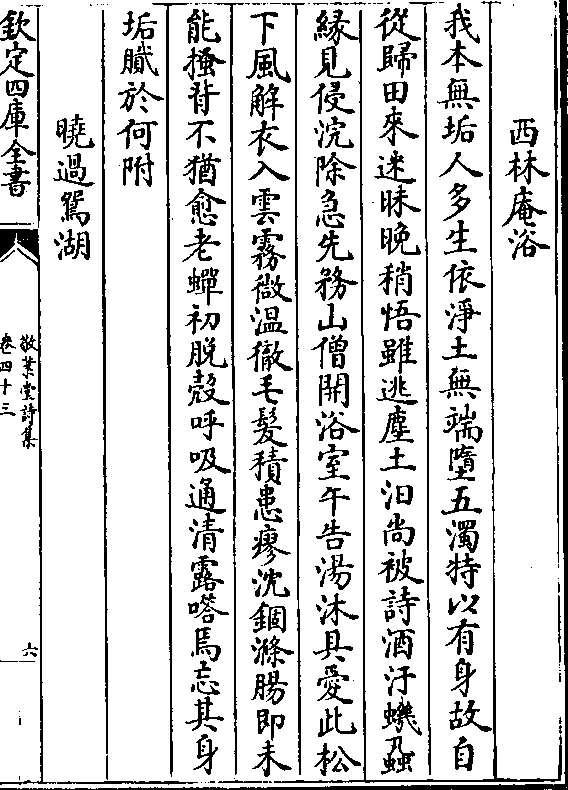 西林庵浴
我本無垢人多生依淨土無端墮五濁特以有身故自
從歸田來迷昧晚稍悟雖逃塵土汨尚被詩酒汙蟣蝨
縁見侵浣除急先務山僧開浴室午告湯沐具愛此松
下風解衣入雲霧微温徹毛髮積患瘳沈錮滌腸即未
能搔背不猶愈老蟬初脱殼呼吸通清露嗒焉忘其身
垢膩於何附
曉過鴛湖
欽定四庫全書
敬業堂詩集
卷四十三
六